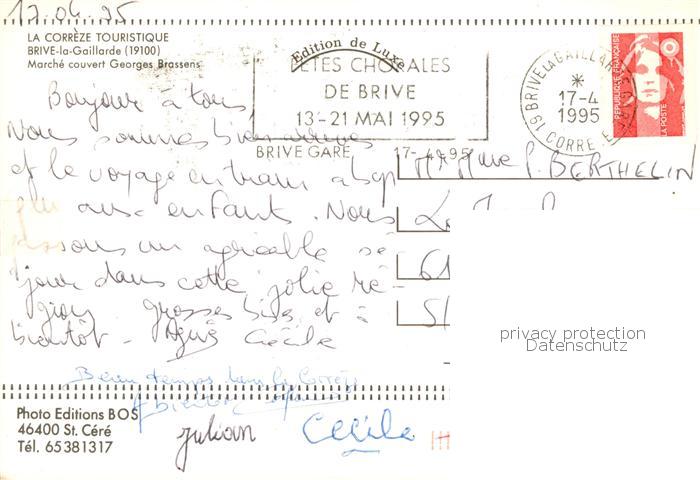 17.04.95
LA CORRÈZE TOURISTIQUE
BRIVE-la-Gaillarde (19100)
Marché couvert Georges Brassens
Edition de Luxe
FÊTES CHORALES
DE BRIVE
13-21 MAI 1995
BRIVE GARE 17-4-95
19 BRIVE LA GAILLARDE
*
17-4
1995
CORREZE
REPUBLIQUE FRANÇAISE
LA POSTE
Bonjour à tous,
Nous sommes bien arrivés
et le voyage en train a bcp
plu aux enfants. Nous
passons un agréable sé
jour dans cette jolie ré-
gion. Grosses bises et à
bientôt - Agnès Cécile
Beau temps dans la Corrèze
A bientôt
julian Cecile
M. Mme P. BERTHELIN
61
51
privacy protection
Datenschutz
Photo Editions BOS
46400 St. Céré
Tél. 65381317